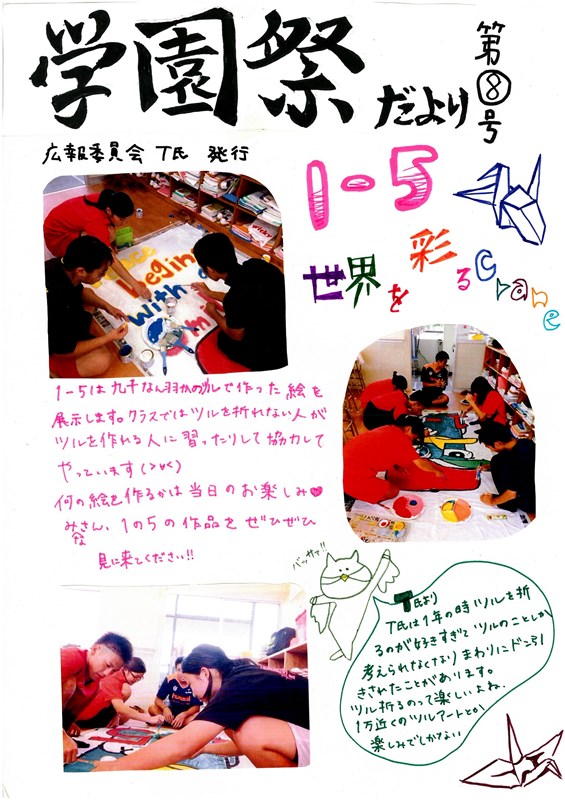 学園祭だより 第⑧号
広報委員会 T氏 発行
1-5
世界を彩るCrane
Peace
begin
with a
smi
1-5は九千なん羽かのツルで作った絵を
展示します。クラスではツルを折れない人が
ツルを作れる人に習ったりして協力して
やっています(>∀<)
何の絵を作るかは当日のお楽しみ♥
みなさん、1の5の作品をぜひぜひ
見に来てください!!
バッサァ!!
T氏より
T氏は1年の時ツルを折
るのが好きすぎてツルのことしか
考えられなくなりまわりにドン引
きされたことがあります。
ツル折るのって楽しいよね。
1万近くのツルアートとか
楽しみでしかない